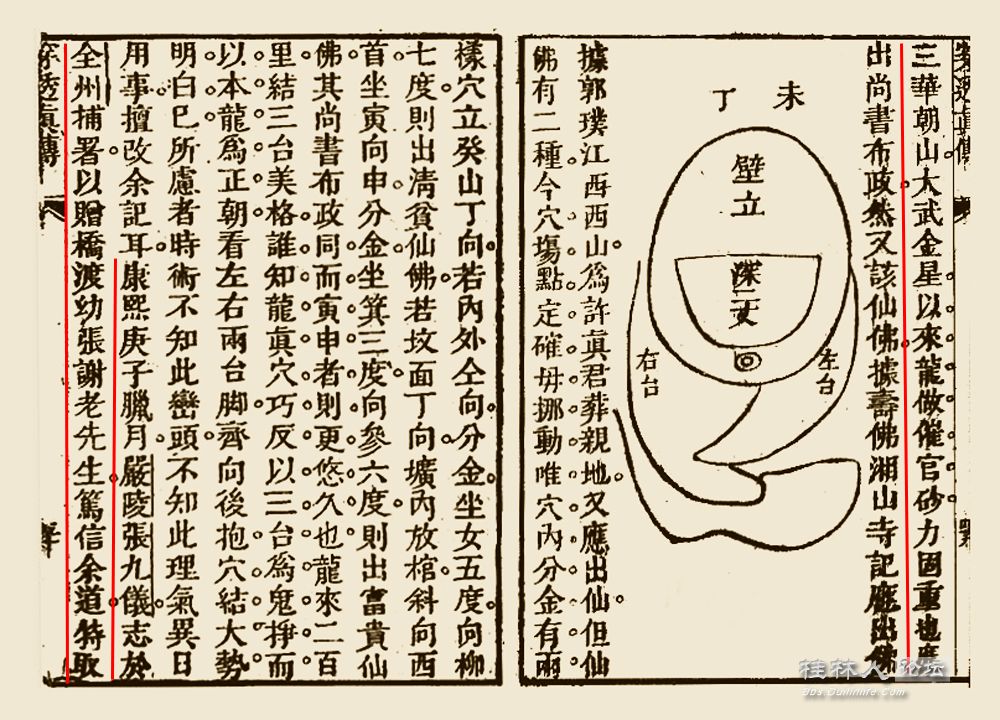 三華朝山大武金星以來龍做催官砂力固重也應
出尚書布政然又該仙佛據壽佛湘山寺記應出佛
未
丁
壁立
深二丈
左台
右台
據郭璞江西西山為許真君葬親地又應出仙但仙
佛有二種今穴塲點定確毋挪動唯穴內分金有兩
樣穴立癸山丁向若內外仝向分金坐女五度向柳
七度則出清貧仙佛若坟面丁向壙內放棺斜向西
首坐寅向申分金坐箕三度向參六度則出富貴仙
佛其尚書布政同而寅申者則更悠久也龍來二百
里結三台美格誰知龍真穴巧反以三台為鬼掙而
以本龍為正朝看左右兩台脚齊向後抱穴結大勢
明白已所慮者時術不知此巒頭不知此理氣異日
用事擅改余記耳康熙庚子臘月嚴陵張九儀志於
全州捕署以贈橋渡幼張謝老先生篤信余道特取
穿透真傳
桂林人论坛